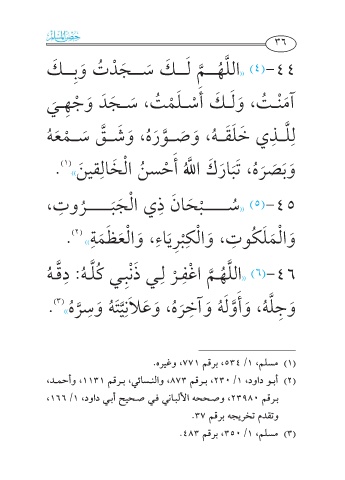 حصن المسلم
٣٦
٤٤-(٤) «اللَّهُمَّ لَكَ سَجَدْتُ وَبِكَ
آمَنْتُ، وَلَكَ أَسْلَمْتُ، سَجَدَ وَجْهِيَ
لِلَّذِي خَلَقَهُ، وَصَوَّرَهُ، وَشَقَّ سَمْعَهُ
وَبَصَرَهُ، تَبَارَكَ اللَّهُ أَحْسنُ الْخَالِقينَ»(١).
٤٥-(٥) «سُبْحَانَ ذِي الْجَبَرُوتِ،
وَالْمَلَكُوتِ، وَالْكِبْرِيَاءِ، وَالْعَظَمَةِ»(٢).
٤٦-(٦) «اللَّهُمَّ اغْفِرْ لِي ذَنْبِي كُلَّهُ: دِقَّهُ
وَجِلَّهُ، وَأَوَّلَهُ وَآخِرَهُ، وَعَلاَنِيَّتَهُ وَسِرَّهُ»(٣).
(١) مسلم، ١/ ٥٣٤، برقم ٧٧١، وغيره.
(٢) أبو داود، ١/ ٢٣٠، برقم ٨٧٣، والنسائي، برقم ١١٣١، وأحمد،
برقم ٢٣٩٨٠، وصححه الألباني في صحيح أبي داود، ١/ ١٦٦،
وتقدم تخريجه برقم ٣٧.
(٣) مسلم، ١/ ٣٥٠، برقم ٤٨٣.